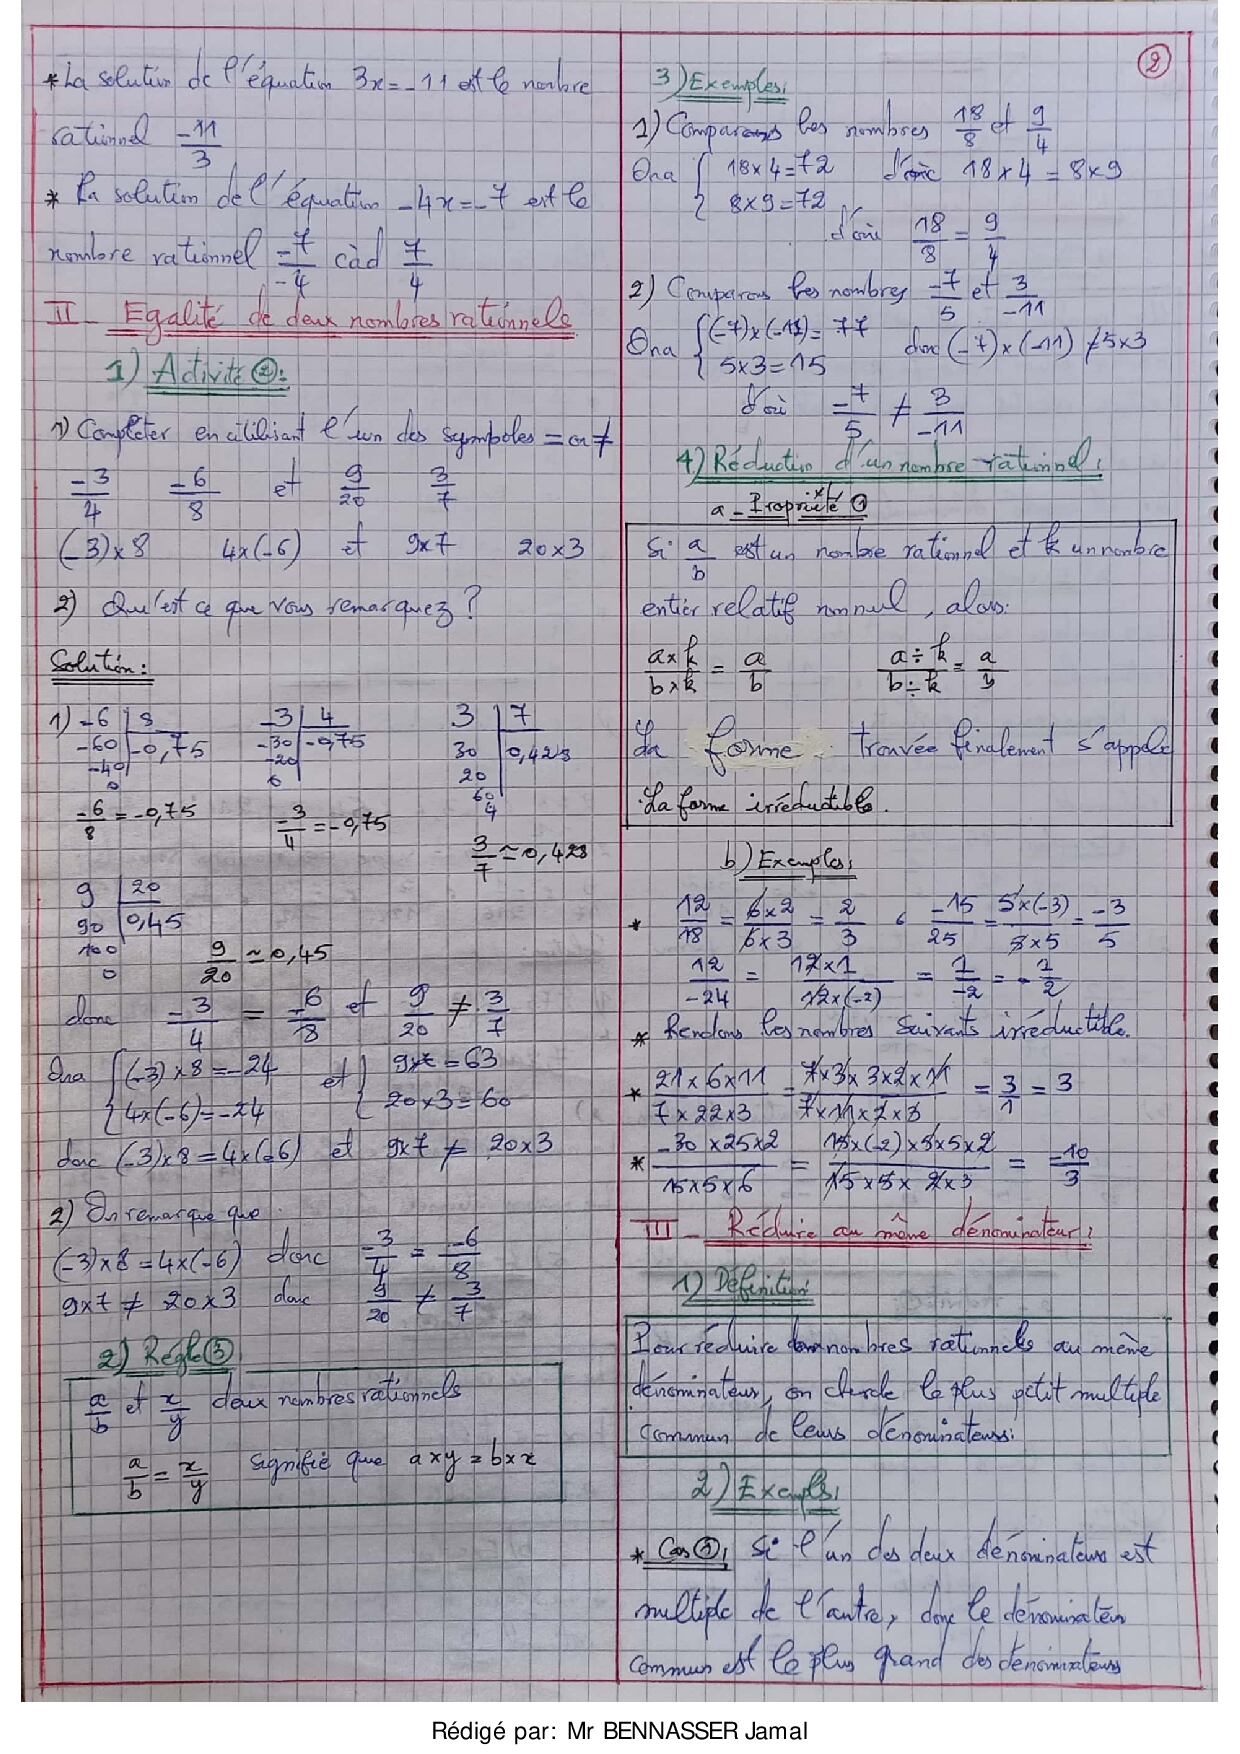 * La solution de l'équation 3x = -11 est le nombre
rationnel -11/3
* La solution de l'équation -4x = -7 est le
nombre rationnel -7/-4 càd 7/4
II - Egalité de deux nombres rationnels
1) Activité ②:
1) Completer en utilisant l'un des symboles = ou ≠
-3/4   -6/8   et   9/20   3/7
(-3)×8   4×(-6)   et   9×7   20×3
2) Qu'est ce que vous remarquez ?
Solution:
1) -6 | 8   -3 | 4   3 | 7
-60 | -0,75   -30 | -0,75   30 | 0,428
-40   -20   20
0   0   60
4
-6/8 = -0,75   -3/4 = -0,75
3/7 ≃ 0,428
9 | 20
90 | 0,45
100
0   9/20 ≃ 0,45
donc -3/4 = -6/8 et 9/20 ≠ 3/7
Ona { (-3)×8 = -24   et { 9×7 = 63
4×(-6) = -24   20×3 = 60
donc (-3)×8 = 4×(-6) et 9×7 ≠ 20×3
2) On remarque que
(-3)×8 = 4×(-6) donc -3/4 = -6/8
9×7 ≠ 20×3 donc 9/20 ≠ 3/7
2) Règle ③
a/b et x/y deux nombres rationnels
a/b = x/y signifie que a×y = b×x
②
3) Exemples:
1) Comparons les nombres 18/8 et 9/4
Ona { 18×4 = 72   donc 18×4 = 8×9
8×9 = 72
d'où 18/8 = 9/4
2) Comparons les nombres -7/5 et 3/-11
Ona { (-7)×(-11) = 77   donc (-7)×(-11) ≠ 5×3
5×3 = 15
d'où -7/5 ≠ 3/-11
4) Réduction d'un nombre rationnel:
a - Propriété ①
Si a/b est un nombre rationnel et k un nombre
entier relatif non nul, alors:
a×k/b×k = a/b   a÷k/b÷k = a/b
La forme trouvée finalement s'appelle
La forme irréductible.
b) Exemples:
* 12/18 = 6×2/6×3 = 2/3 ; -15/25 = 5×(-3)/5×5 = -3/5
12/-24 = 12×1/12×(-2) = 1/-2 = -1/2
* Rendons les nombres suivants irréductible.
* 21×6×11/7×22×3 = 7×3×3×2×11/7×11×2×3 = 3/1 = 3
* -30×25×2/15×5×6 = 15×(-2)×5×5×2/15×5×2×3 = -10/3
III - Réduire au même dénominateur:
1) Définition
Pour réduire nombres rationnels au même
dénominateur, on cherche le plus petit multiple
commun de leurs dénominateurs.
2) Exemples:
* Cas ①: Si l'un des deux dénominateurs est
multiple de l'autre, donc le dénominateur
commun est le plus grand des dénominateurs
Rédigé par: Mr BENNASSER Jamal